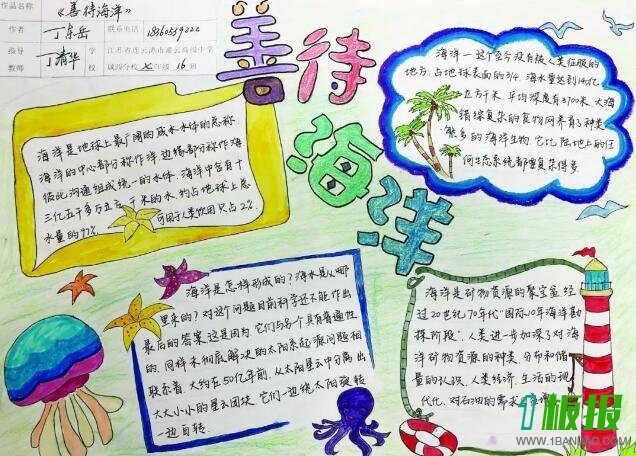 作品名称 《善待海洋》
作者 丁东岳 联系电话
指导教师 丁清华 学校 江苏省连云港市灌云高级中学城西分校七年级16班
善待海洋
海洋是地球上最广阔的咸水水体的总称.
海洋的中心部分称作洋边缘部分称作海
彼此沟通组成统一的水体.海洋中含有十
三亿五千多万立方千米的水.约占地球上总
水量的97% 可用于人类饮用只占2%.
海洋一这个至今没有被人类征服的
地方,占地球表面的3/4.海水量达到14亿
立方千米.平均深度有3700米.大海
错综复杂的食物网养育了种类
繁多的海洋生物.它比陆地上的任
何生态系统都要复杂得多.
海洋是怎样形成的?海水是从哪
里来的?对这个问题目前科学还不能作出
最后的答案这是因为,它们与另个具有普遍性
的,同样未彻底解决的太阳系起源问题相
联系着.大约在50亿年前,从太阳星云中分离出
大大小小的星云团块.它们一边绕太阳旋转
一边自转.
海洋是矿物资源的聚宝盆.经
过20世纪70年代"国际10年海洋勘
探阶段",人类进一步加深了对海
洋矿物资源的种类,分布和储
量的认识.人类经济,生活的现
代化,对石油的需求
板报
WWW.1BANBAO.COM